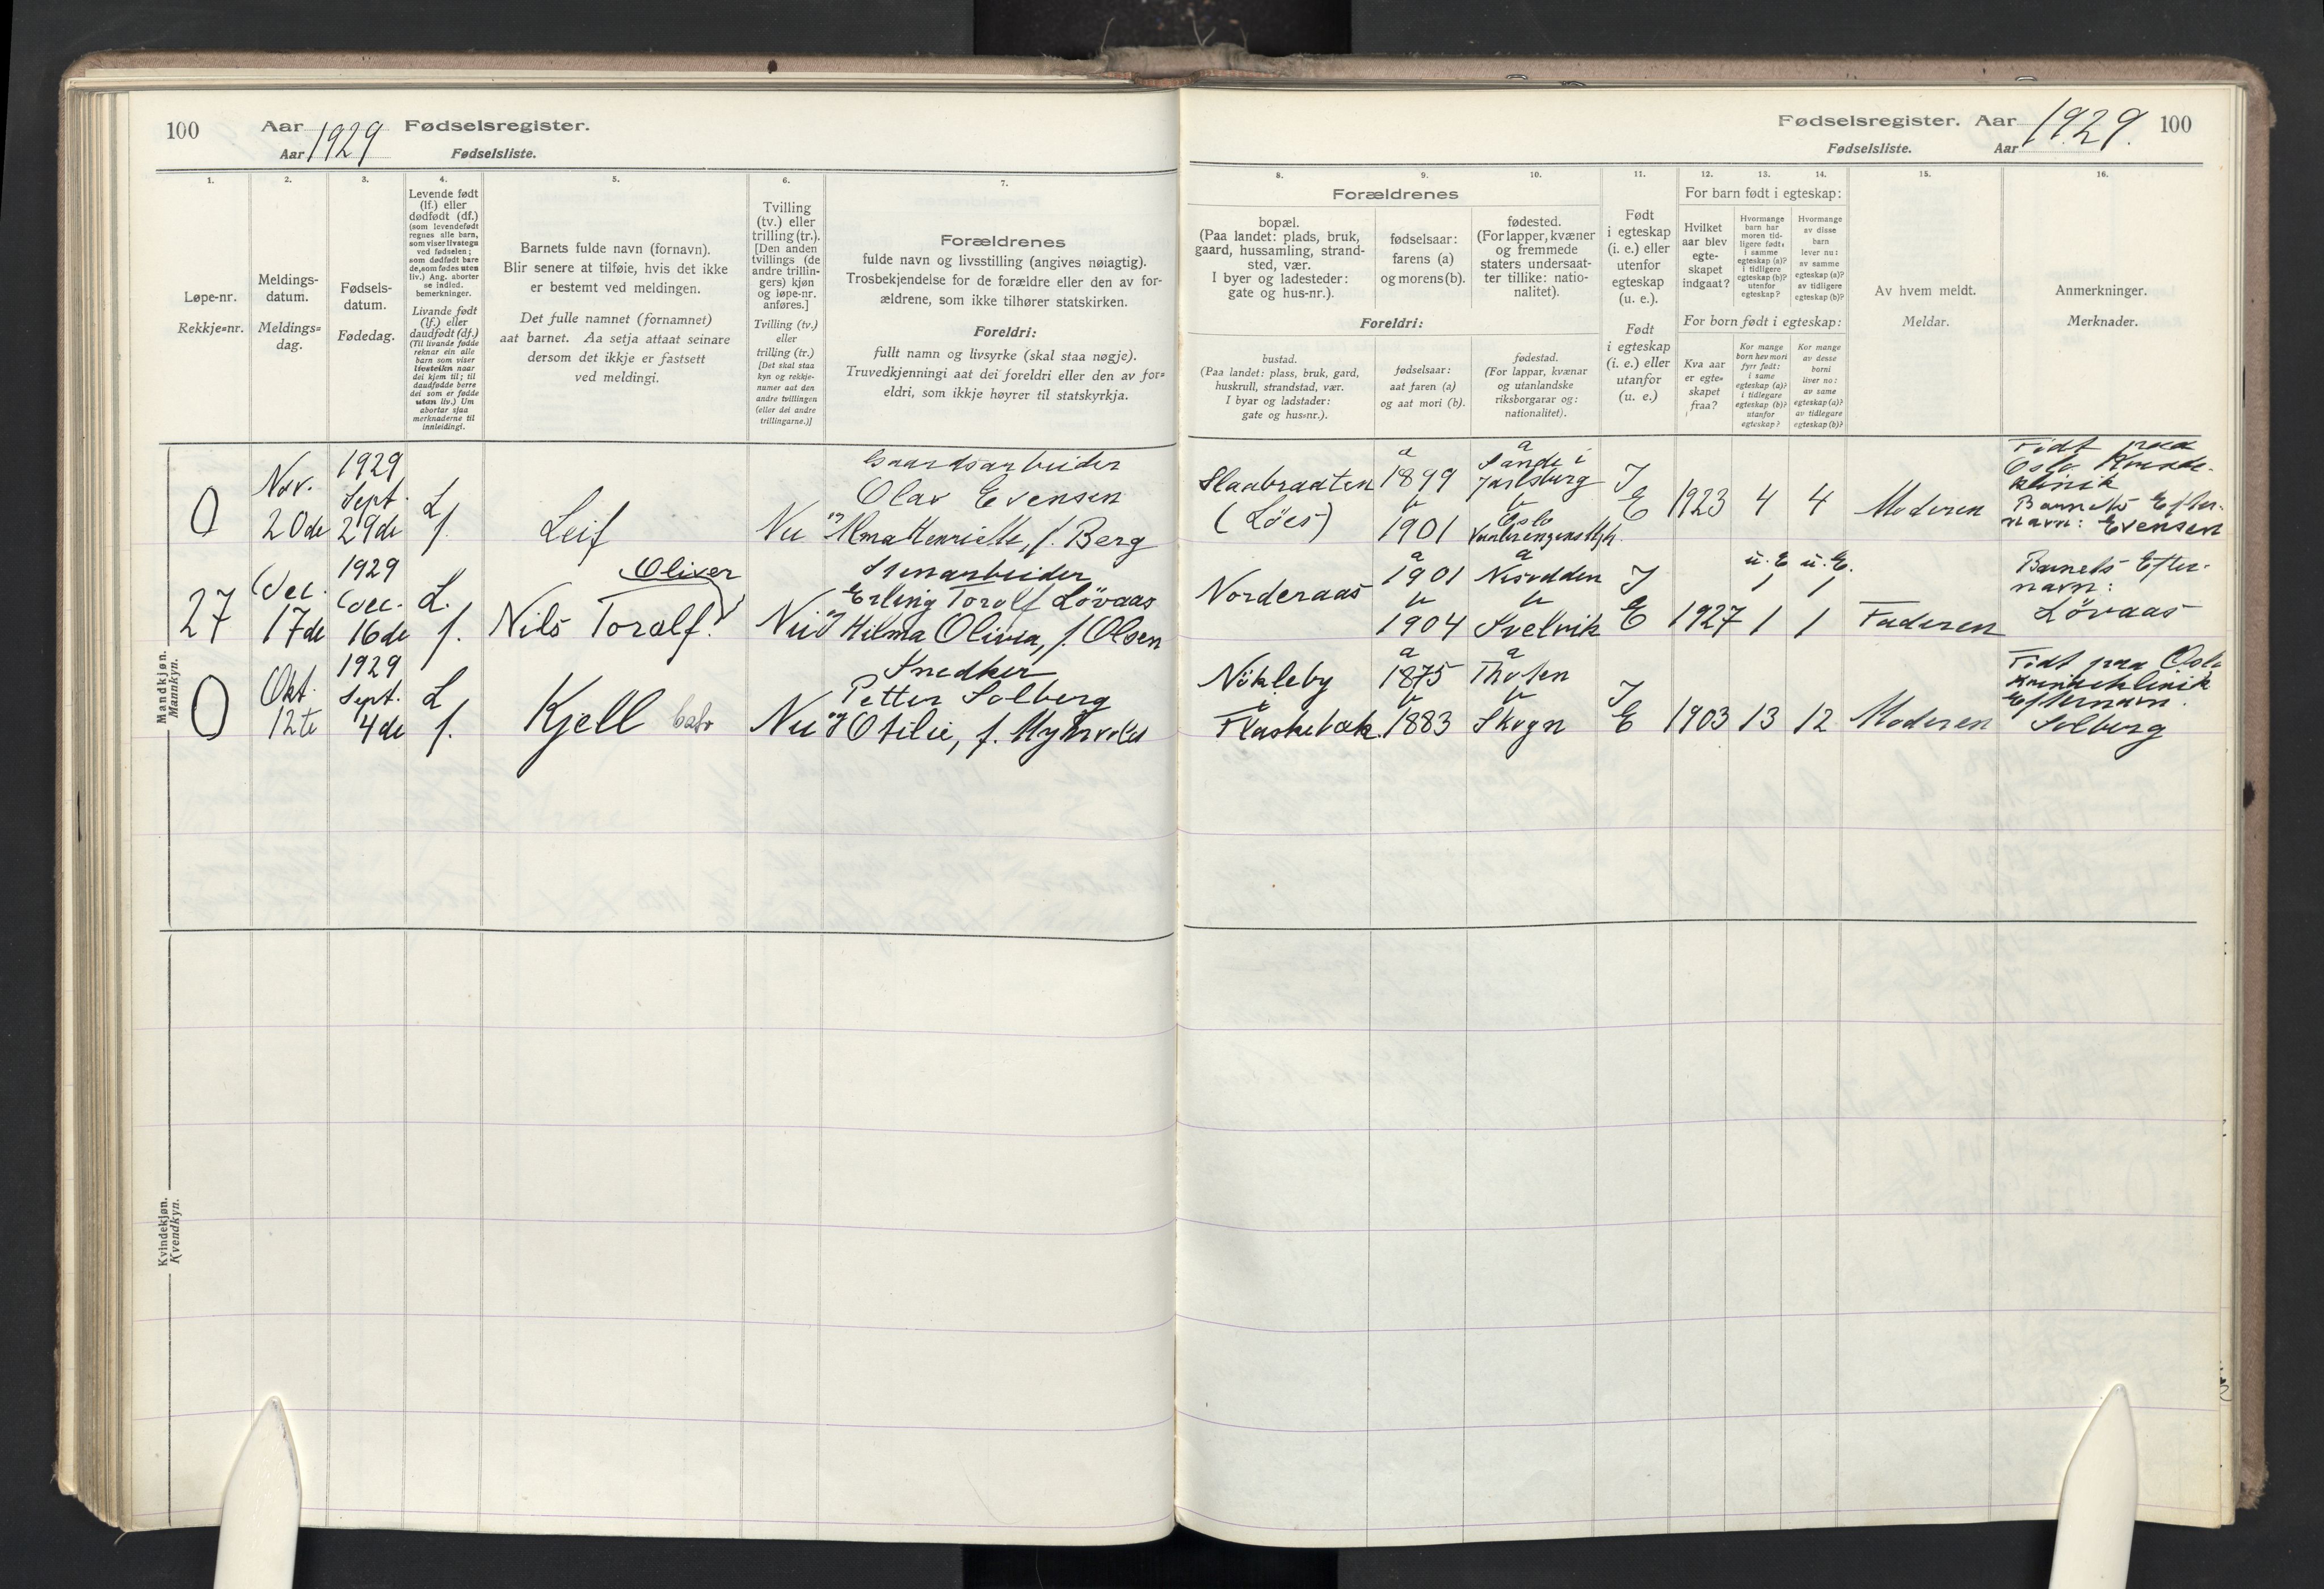 100
Aar 1929 Fødselsregister.
Aar Fødselsliste.
1.
Løpe-nr.
Rekkje=nr.
2.
Meldings-
datum.
Meldings=
dag.
3.
Fødsels-
datum.
Fødedag.
4.
Levende født
(lf.) eller
dødfødt (df.)
(som levendefødt
regnes alle barn,
som viser livstegn
ved fødselen;
som dødfødt bare
de, som fødes uten
liv.) Ang. aborter
se indled.
bemerkninger.
Livande født
(lf.) eller
daudfødt (df.)
(Til livande fødde
reknar ein alle
barn som viser
livsteikn naar
dei kjem til; til
daudfødde berre
dei som er fødde
utan liv.) Um
abortar sjaa
merknaderne til
innleidingi.
5.
Barnets fulde navn (fornavn).
Blir senere at tilføie, hvis det ikke
er bestemt ved meldingen.
Det fulle namnet (fornamnet)
aat barnet. Aa setja attaat seinare
dersom det ikkje er fastsett
ved meldingi.
6.
Tvilling
(tv.) eller
trilling (tr.).
[Den anden
tvillings (de
andre trillin-
gers) kjøn
og løpe-nr.
anføres.]
Tvilling (tv.)
eller
trilling (tr.)
[Det skal staa
kyn og rekkje-
numer aat den
andre tvillingen
(eller dei andre
trillingarne.)]
7.
Forældrenes
fulde navn og livsstilling (angives nøiagtig).
Trosbekjendelse for de forældre eller den av for-
ældrene, som ikke tilhører statskirken.
Foreldri:
fullt namn og livsyrke (skal staa nøgje).
Truvedkjenningi aat dei foreldri eller den av for=
eldri, som ikkje høyrer til statskyrkja.
Mandkjøn.
Mannkyn.
0
Nov.
20de
1929
Sept.
29de
L
f.
Leif
Nei
Gaardsarbeider
Olav Evensen
og Alma Henriette, f. Berg
27
Dec.
17de
1929
Dec.
16de
L.
f.
Oliver
Nils Toralf.
Nei
Erling Toralf Lövaas
og Hilma Olivia, f. Olsen
0
Okt.
12te
1929
Sept.
4de
L
f.
Kjell
Nei
Snedker
Petter Solberg
og Otilie, f. Myhrvold
Kvindekjøn.
Kvendkyn.
Fødselsregister. Aar 1929. 100
Fødselsliste. Aar
8.
9.
10.
Forældrenes
bopæl.
(Paa landet: plads, bruk,
gaard, hussamling, strand-
sted, vær.
I byer og ladesteder:
gate og hus-nr.).
fødselsaar:
farens (a)
og morens (b).
fødested.
(For lapper, kvæner
og fremmede
staters undersaat-
ter tillike: natio-
nalitet).
Foreldri:
bustad.
(Paa landet: plass, bruk, gard,
huskrull, strandstad, vær.
I byar og ladstader:
gate og hus=nr.).
fødselsaar:
aat faren (a)
og aat mori (b).
fødestad.
(For lappar, kvænar
og utanlandske
riksborgarar og:
nationalitet).
11.
Født
i egteskap
(i. e.) eller
utenfor
egteskap
(u. e.).
Født
i egteskap
(i. e.) eller
utanfor
(u. e.)
12.
13.
14.
For barn født i egteskap:
Hvilket
aar blev
egte-
skapet
indgaat?
Hvormange
barn har
moren tid-
ligere født:
i samme
egteskap (a)?
i tidligere
egteskap (b)?
utenfor
egteskap?
Hvormange
av disse
barn
lever nu:
av samme
egteskap (a)?
av tidligere
egteskap (b)?
For born født i egteskap:
Kva aar
er egte=
skapet
fraa?
Kor mange
born hev mori
fyrr født:
i same
egteskap (a)?
i tidlegare
egteskap (b)?
utanfor
egteskap?
Kor mange
av desse
borni
liver no:
av same
egteskap (a)?
av tidlegare
egteskap (b)?
15.
Av hvem meldt.
Meldar.
16.
Anmerkninger.
Merknader.
Slaabraaten
(Löes)
a
1899
b
1901
a
Sande i
Jarlsberg
b
Oslo
I
E
1923
4
4
Moderen
Födt paa
Oslo Kvinde-
klinik
Barnets Efter-
navn: Evensen
Norderaas
a
1901
b
1904
a
b
Svelvik
I
E
1927
u. E
1
1
u. E.
1
1
Faderen
Barnets Efter-
navn:
Lövaas
Nökleby
Flaskebæk.
a
1875
b
1883
a
b
Skogn
I
E
1903
13
12
Moderen
Födt paa Oslo
Kvindeklinik
Efternavn.
Solberg